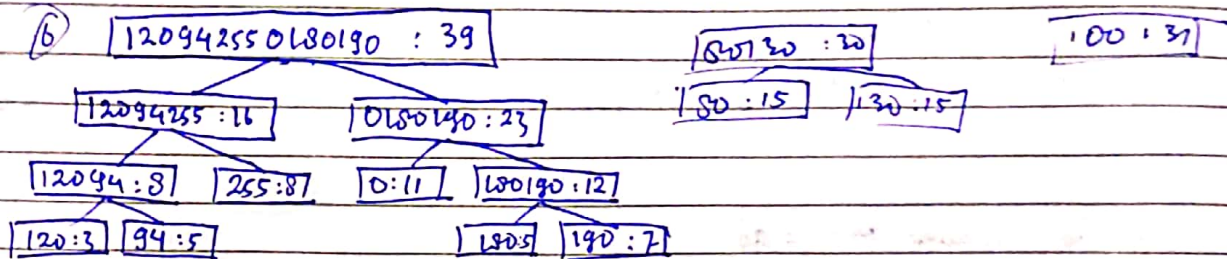 6 120942550180190 : 39 80130 : 30 100 : 31
12094255 : 16 0180190 : 23 80 : 15 130 : 15
12094 : 8 255 : 8 0 : 11 180190 : 12
120 : 3 94 : 5 180:5 190 : 7